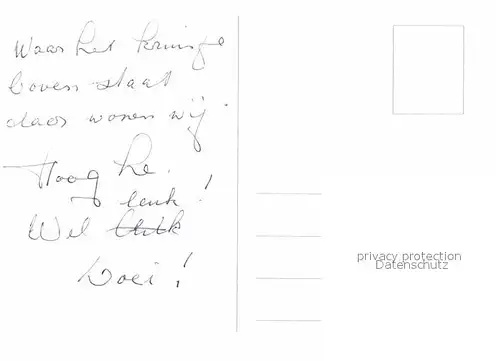 Waar het kruisje
boven staat
daar wonen wij.
Hoog he.
leuk!
Wel
Doei!
privacy protection
Datenschutz